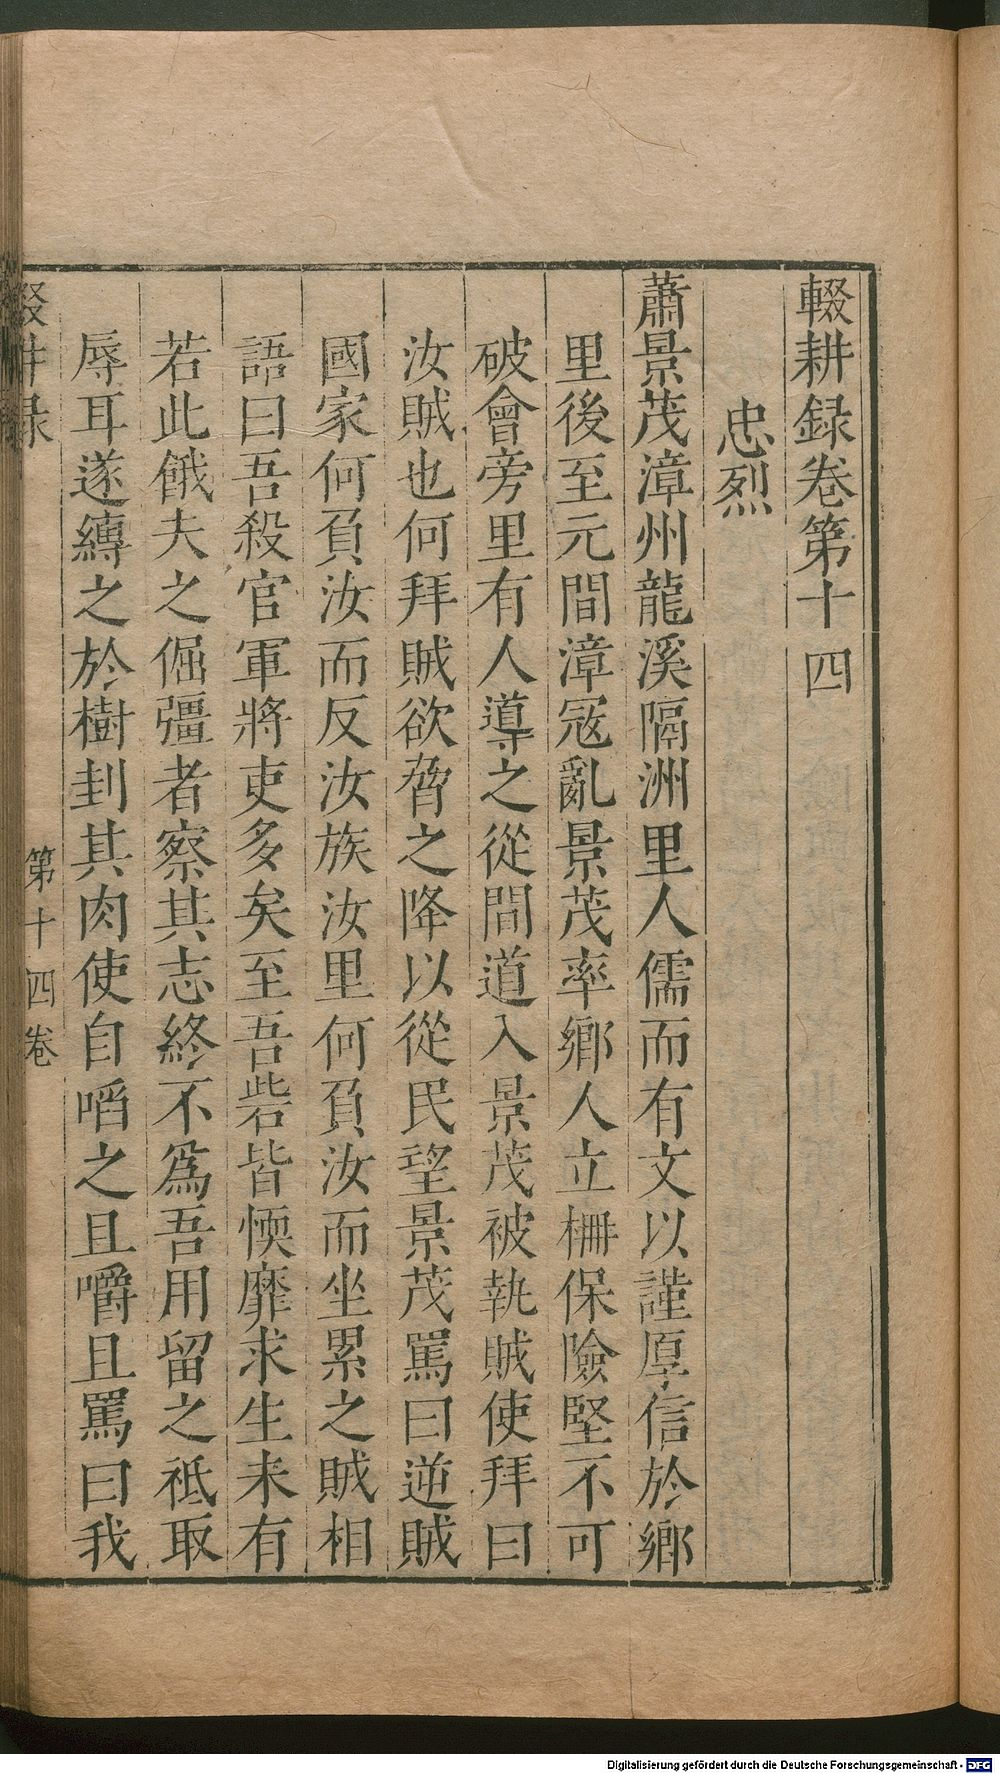 輟耕録卷第十四
忠烈
蕭景茂漳州龍溪隔洲里人儒而有文以謹厚信於鄉
里後至元間漳冦亂景茂率鄉人立柵保險堅不可
破會旁里有人導之從間道入景茂被執賊使拜曰
汝賊也何拜賊欲脅之降以從民望景茂罵曰逆賊
國家何負汝而反汝族汝里何負汝而坐累之賊相
語曰吾殺官軍將吏多矣至吾砦皆愞靡求生未有
若此餓夫之倔彊者察其志終不爲吾用留之祗取
辱耳遂縛之於樹刲其肉使自啗之且嚼且罵曰我
輟耕録
第十四卷
Digitalisierung gefördert durch die Deutsche Forschungsgemeinschaft - DFG